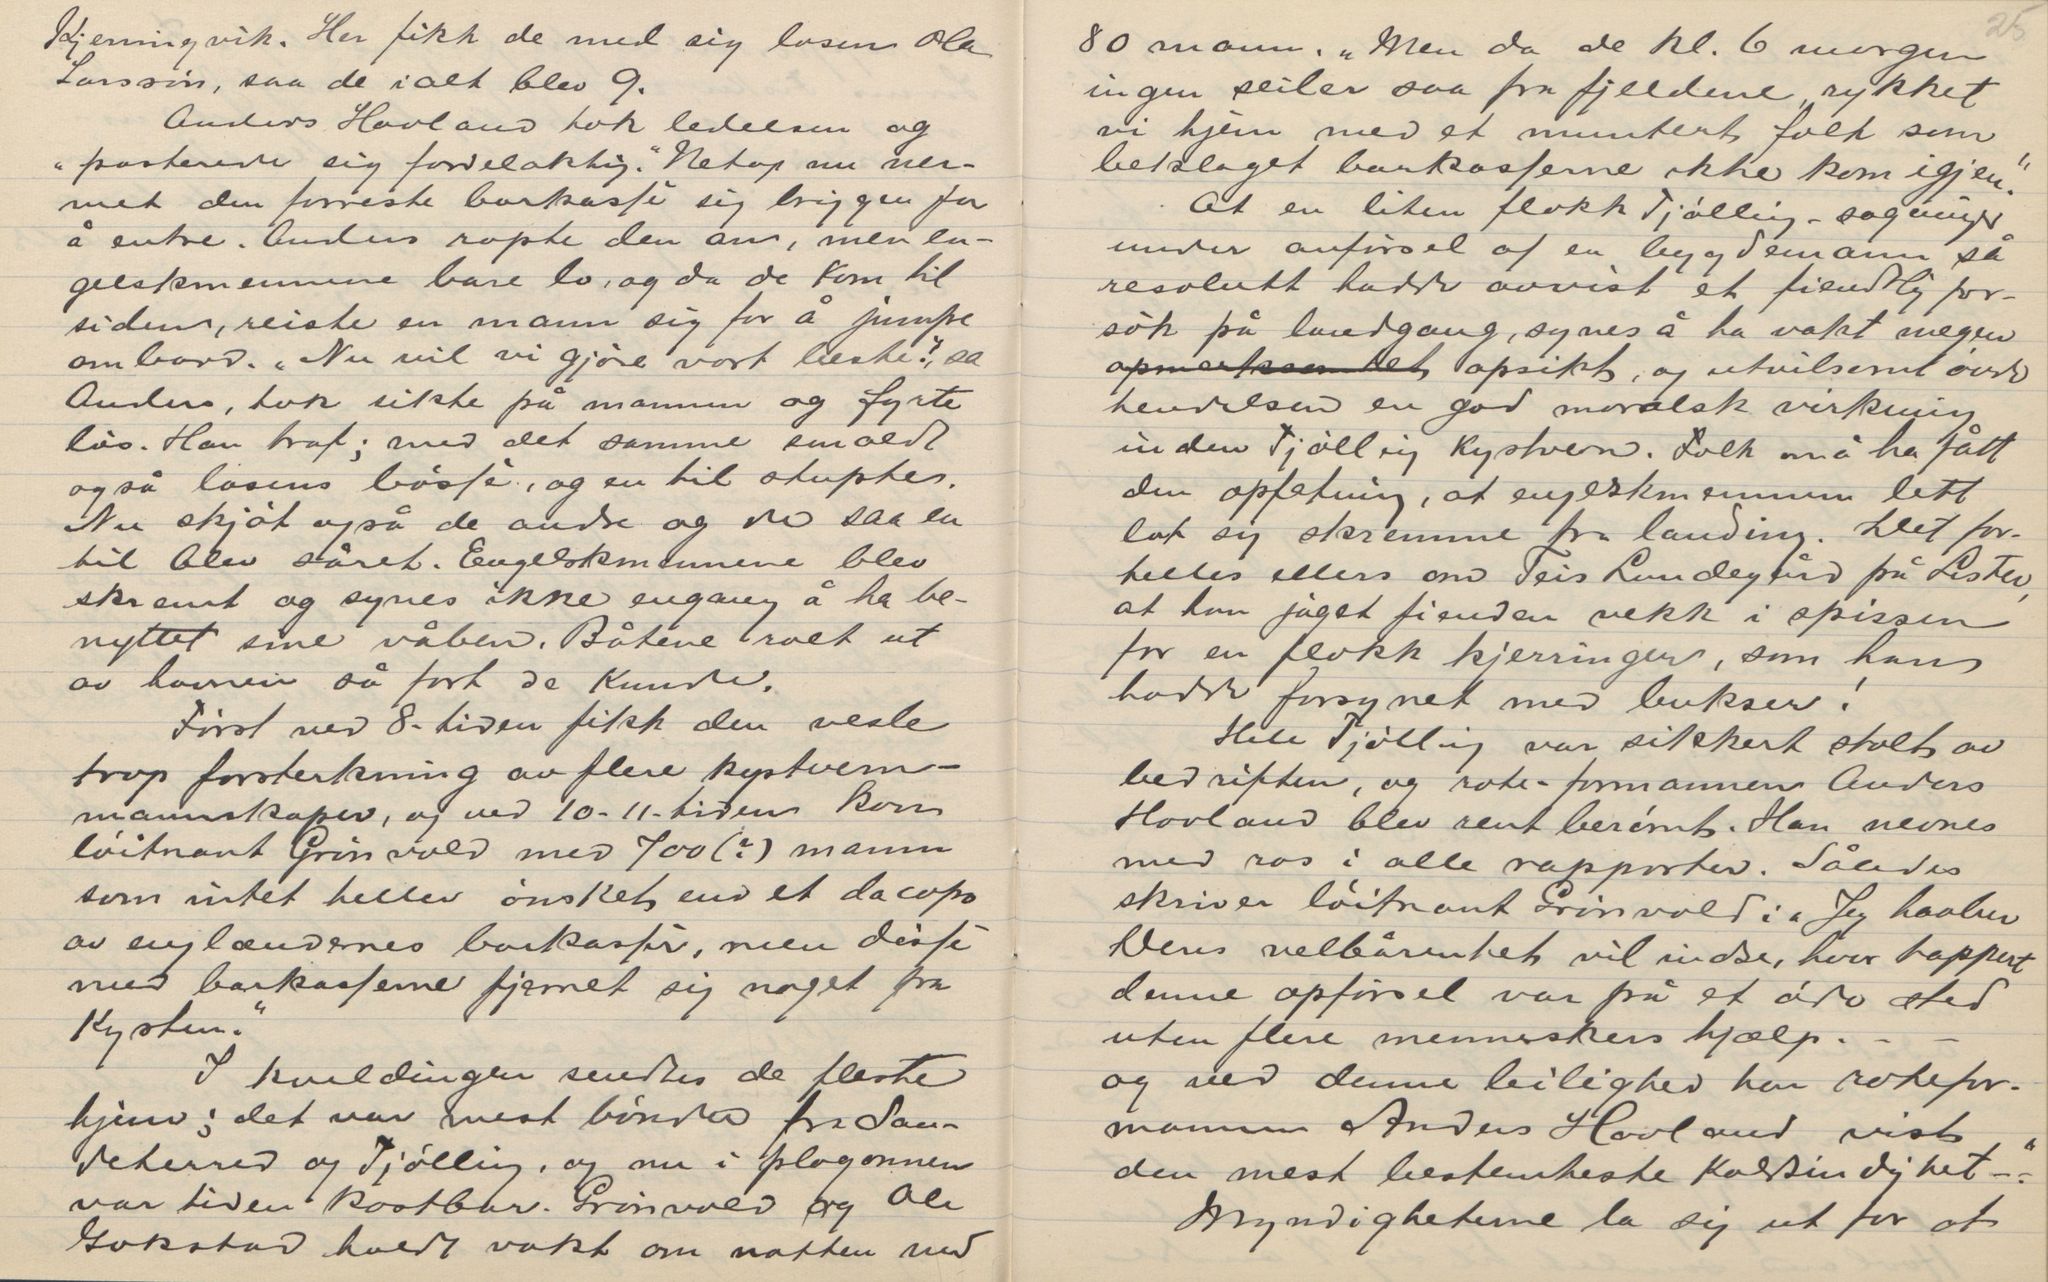 Kjerringvik. Her fikk de med sig losen Ola
Larssøn, saa de i alt blev 9.
Anders Hovland tok ledelsen og
„posterede sig fordelaktig." Netop nu ner-
met den forreste barkasse sig briggen for
å entre. Anders ropte den an, men en-
gelskmennene bare lo, og da de kom til
siden, reiste en mann sig for å jumpe
ombord. „Nu vil vi gjøre vort beste", sa
Anders, tok sikte på mannen og fyrte
løs. Han traf; med det samme smaldt
også losens bøsse, og en til stuptes.
Nu skjøt også de andre og de saa en
til blev såret. Engelskmennene blev
skremt og synes ikke engang å ha be-
nyttet sine våben. Båtene roet ut
av havnen så fort de kunde.
Først ved 8-tiden fikk den vesle
trop forsterkning av flere kystvern-
mannskaper, og ved 10-11-tiden kom
løitnant Grønvold med 700(?) mann
som intet heller ønsket end et dacapo
av englændernes barkasse, men disse
med barkasserne fjernet sig noget fra
Kysten."
I kveldingen sendtes de fleste
hjem; det var mest bønder fra San-
deherred og Tjølling, og nu i plogonnen
var tiden kostbar. Grønvold og Ole
Gokstad holdt vakt om natten med
25
80 mann. „Men da de kl. 6 morgen
ingen seiler saa fra fjeldene, rykket
vi hjem med et muntert folk som
beklaget barkasserne ikke kom igjen."
At en liten flokk Tjølling-sogninger
under anførsel af en bygdemann så
resolutt hadde avvist et fiendtlig for-
søk på landgang, synes å ha vakt megen
opmerksomhet opsikt, og utvilsomt øvde
hendelsen en god moralsk virkning
inden Tjølling Kystvern. Folk må ha fått
den opfatning, at engelskmennene lett
lot sig skremme fra landing. Det for-
telles ellers om Teis Lundegård på Lister,
at han jaget fienden vekk i spissen
for en flokk kjerringer, som han
hadde forsynet med bukser!
Hele Tjølling var sikkert stolt av
bedriften, og rote-formannen Anders
Hovland blev rent berømt. Han nevnes
med ros i alle rapporter. Således
skriver løitnant Grønvold: „Jeg haaber
Deres velbårenhet vil indse, hvor tappert
denne opførsel var på et øde sted
uten flere menneskers hjælp. - -
og ved denne leilighed har rotefor-
mannen Anders Hovland vist
den mest bestemteste Koldsindighet -."
Myndigheterne la sig ut for at